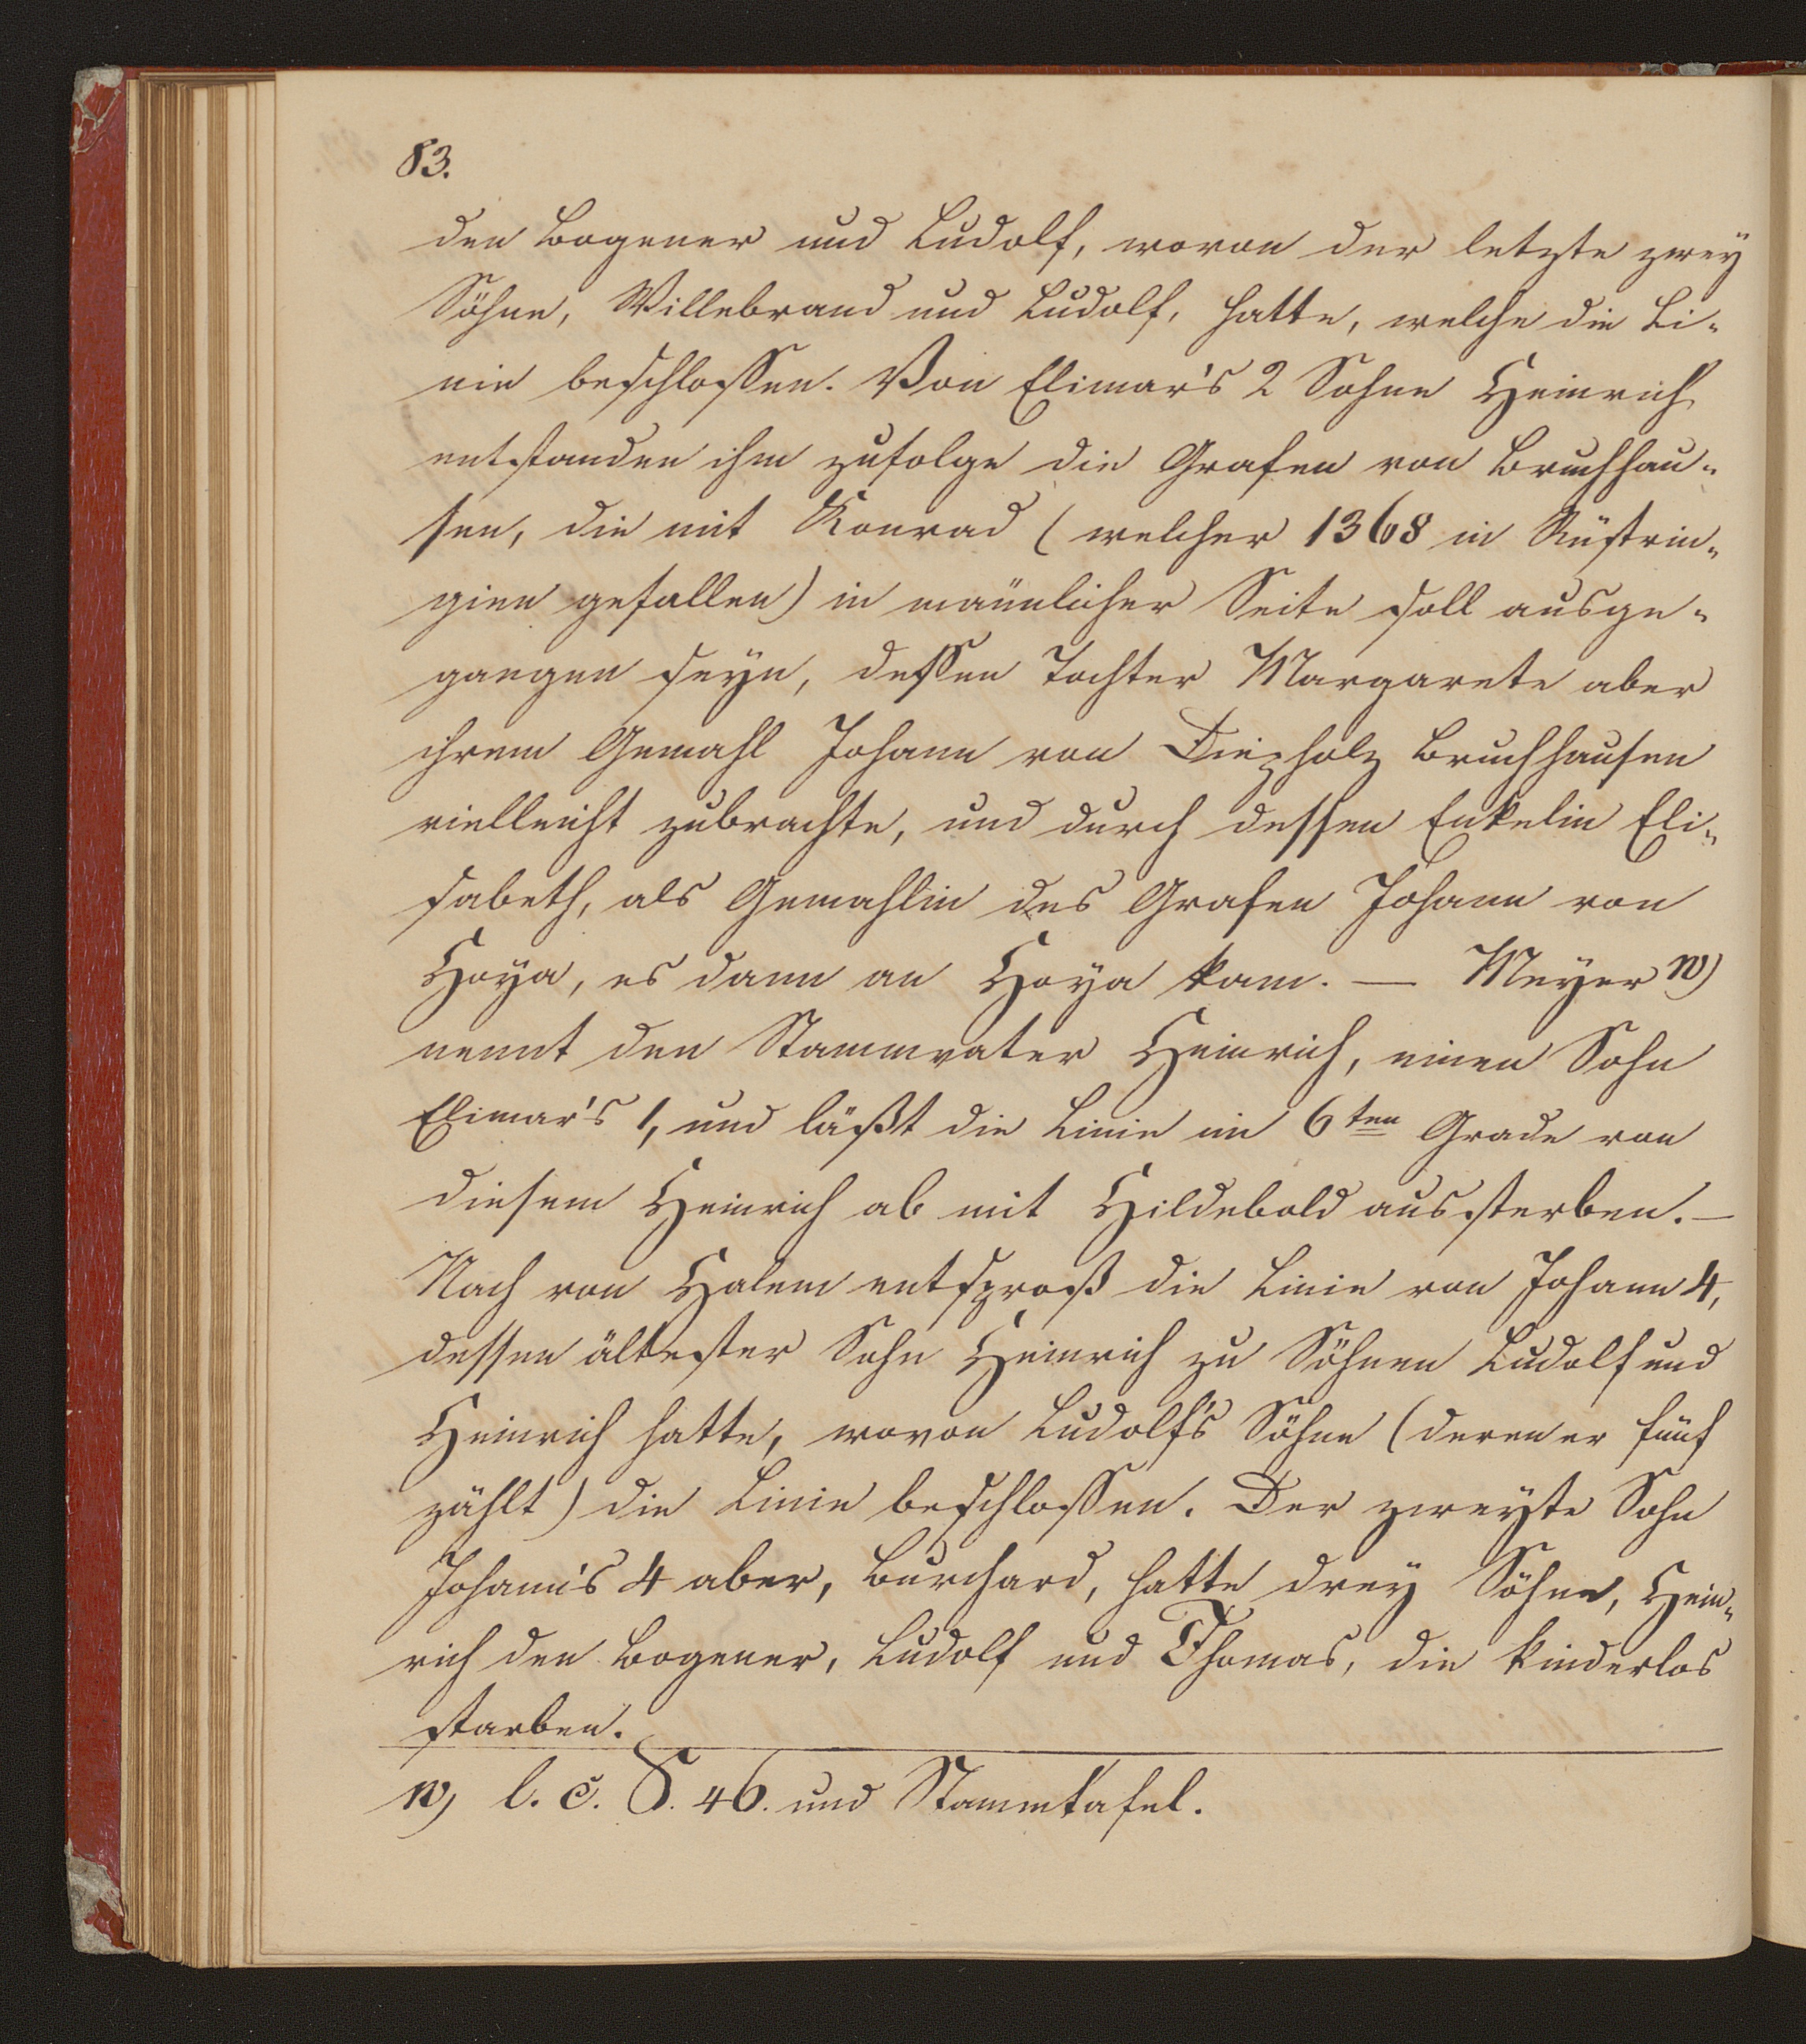 83.
den Bogener und Ludolf, wovon der letzte zwey
Söhne, Willebrand und Ludolf, hatte, welche die Li-
nie beschlossen. Von Elimar's 2 Sohne Heinrich
entstanden ihm zufolge die Grafen von Bruchhau-
sen, die mit Konrad (welcher 1368 in Rüstrin-
gien gefallen) in männlicher Seite soll ausge-
gangen seyn, dessen Tochter Margarete aber
ihrem Gemahl Johann von Diepholz Bruchhausen
vielleicht zubrachte, und durch dessen Enkelin Eli-
sabeth, als Gemahlin des Grafen Johann von
Hoya, es dann an Hoya kam. — Meyer w)
nennt den Stammvater Heinrich, einen Sohn
Elimar's 1, und läßt die Linie im 6ten Grade von
diesem Heinrich ab mit Hildebold aussterben. —
Nach von Halem entsproß die Linie von Johann 4,
dessen ältester Sohn Heinrich zu Söhnen Ludolf und
Heinrich hatte, wovon Ludolf's Söhne (deren er fünf
zählt) die Linie beschlossen. Der zweyte Sohn
Johann's 4 aber, Burchard, hatte drey Söhne, Hein-
rich den Bogener, Ludolf und Thomas, die kinderlos
starben.
w) l. c. S. 46. und Stammtafel.